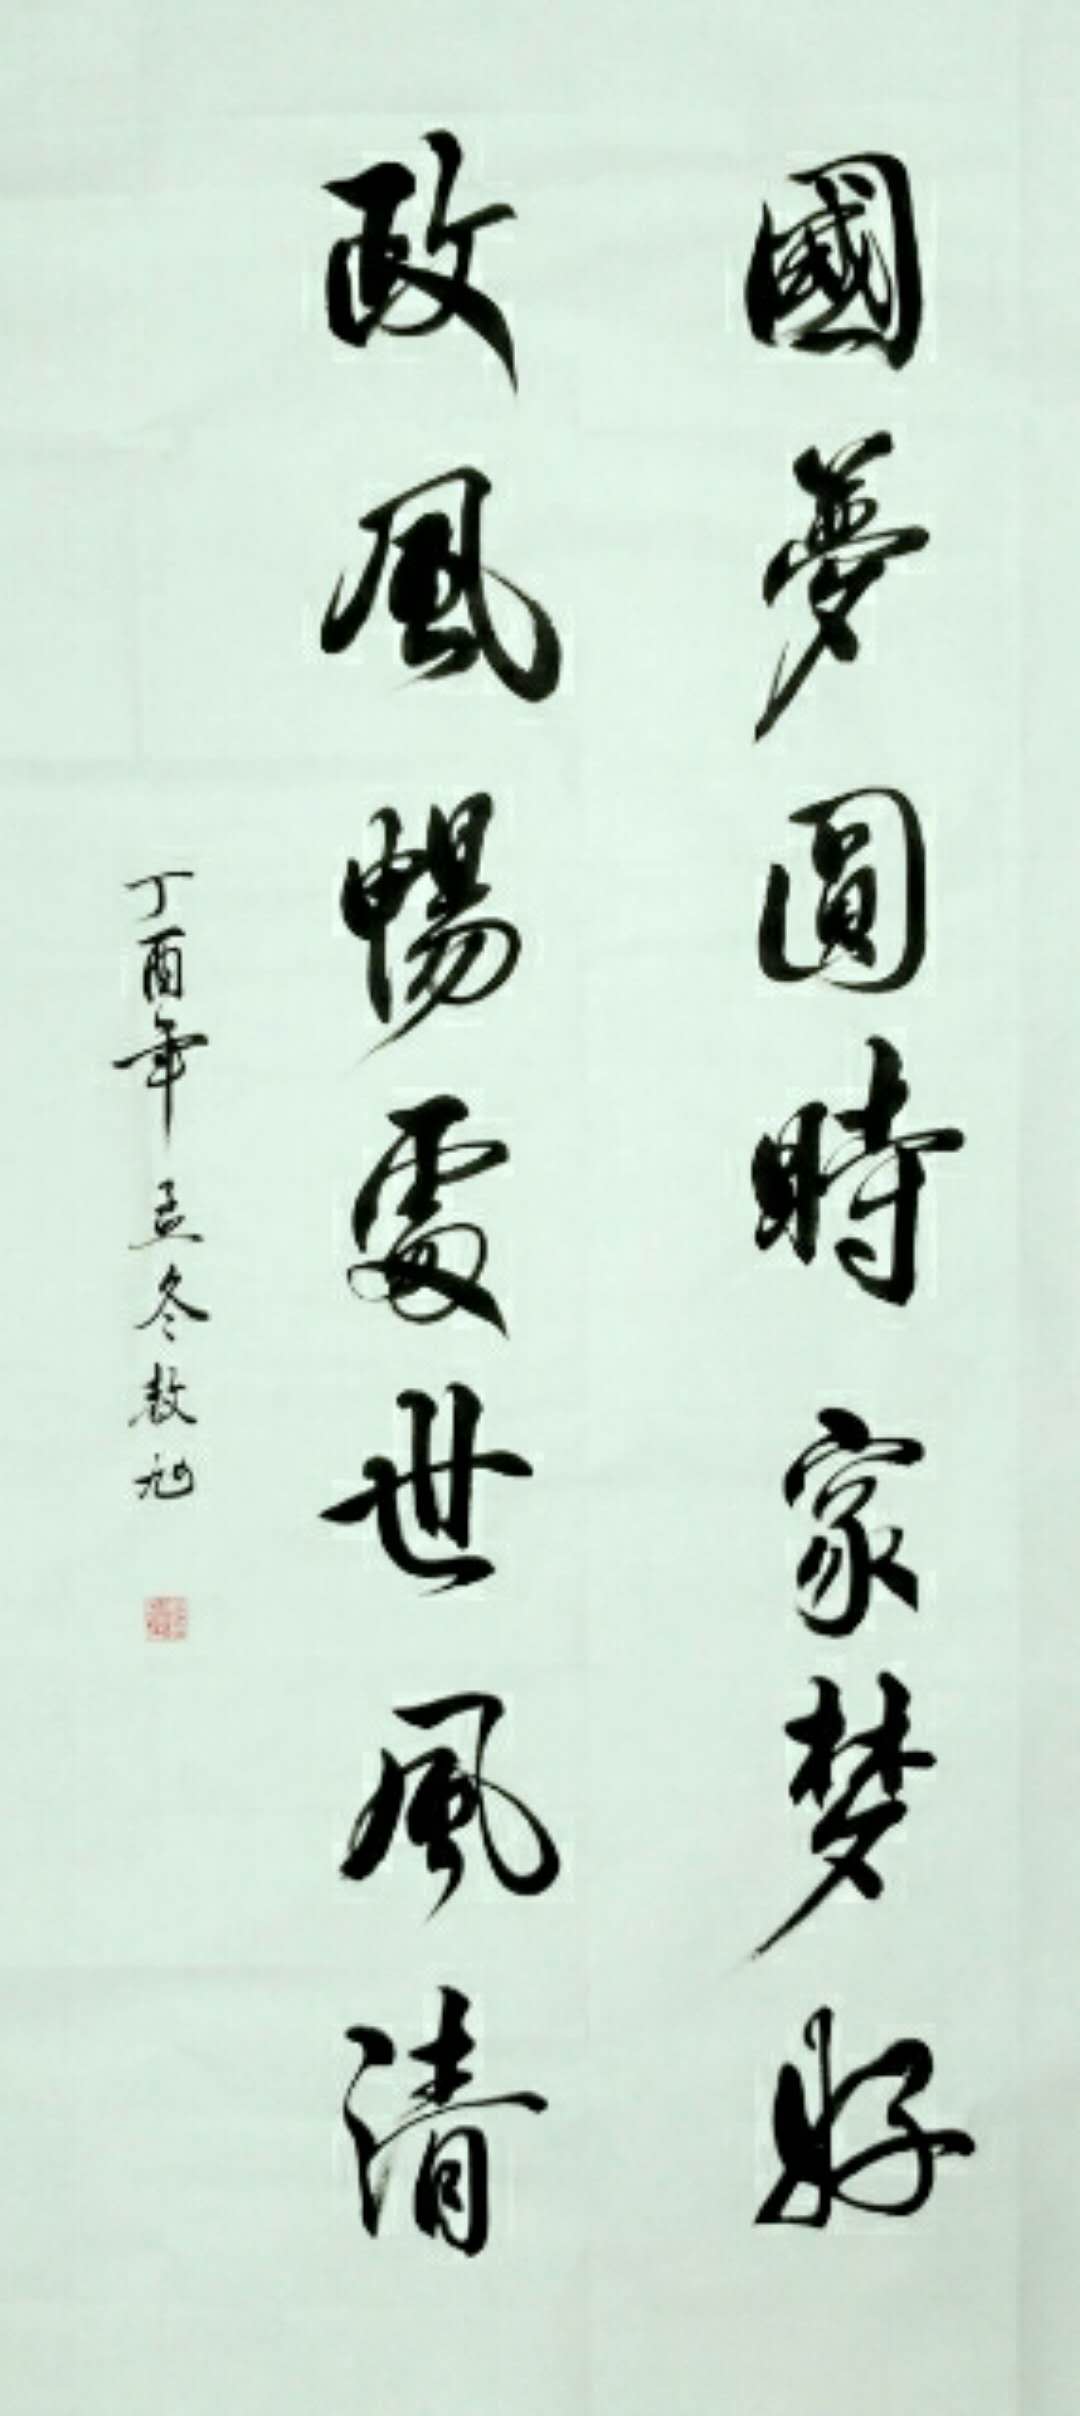 國夢圓時家梦好
政風暢處世風清
丁酉年孟冬敖旭